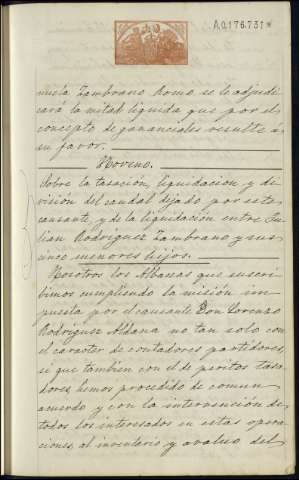 A.0.176.731*
nuela Zambrano Romo se le adjudi-
cará la mitad líquida que por el
concepto de gananciales resulte á
su favor.
Noveno.
Sobre la tasación, liquidación y di-
visión del caudal dejado por este
causante, y de la liquidación entre Ju-
lian Rodríguez Zambrano y sus
menores hijos.
Nosotros los Albaceas que suscri-
bimos cumpliendo la misión im-
puesta por el causante Don Lorenzo
Rodríguez Aldana no tan solo con
el carácter de contadores partidores,
si que tambien con el de peritos tasa-
dores, hemos procedido de comun
acuerdo y con la intervención de
todos los interesados en estas opera-
ciones, al inventario y avaluo del